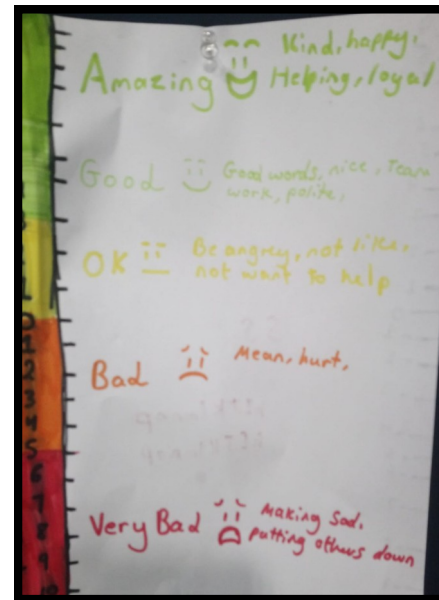 Amazing Kind, happy,
Helping, loyal
Good Good words, nice, Team
work, polite,
OK Be angrey, not like,
not want to help
0
1
2
Bad Mean, hurt,
3
4
5
6
7
Very Bad Making Sad,
8
putting others down
9
10